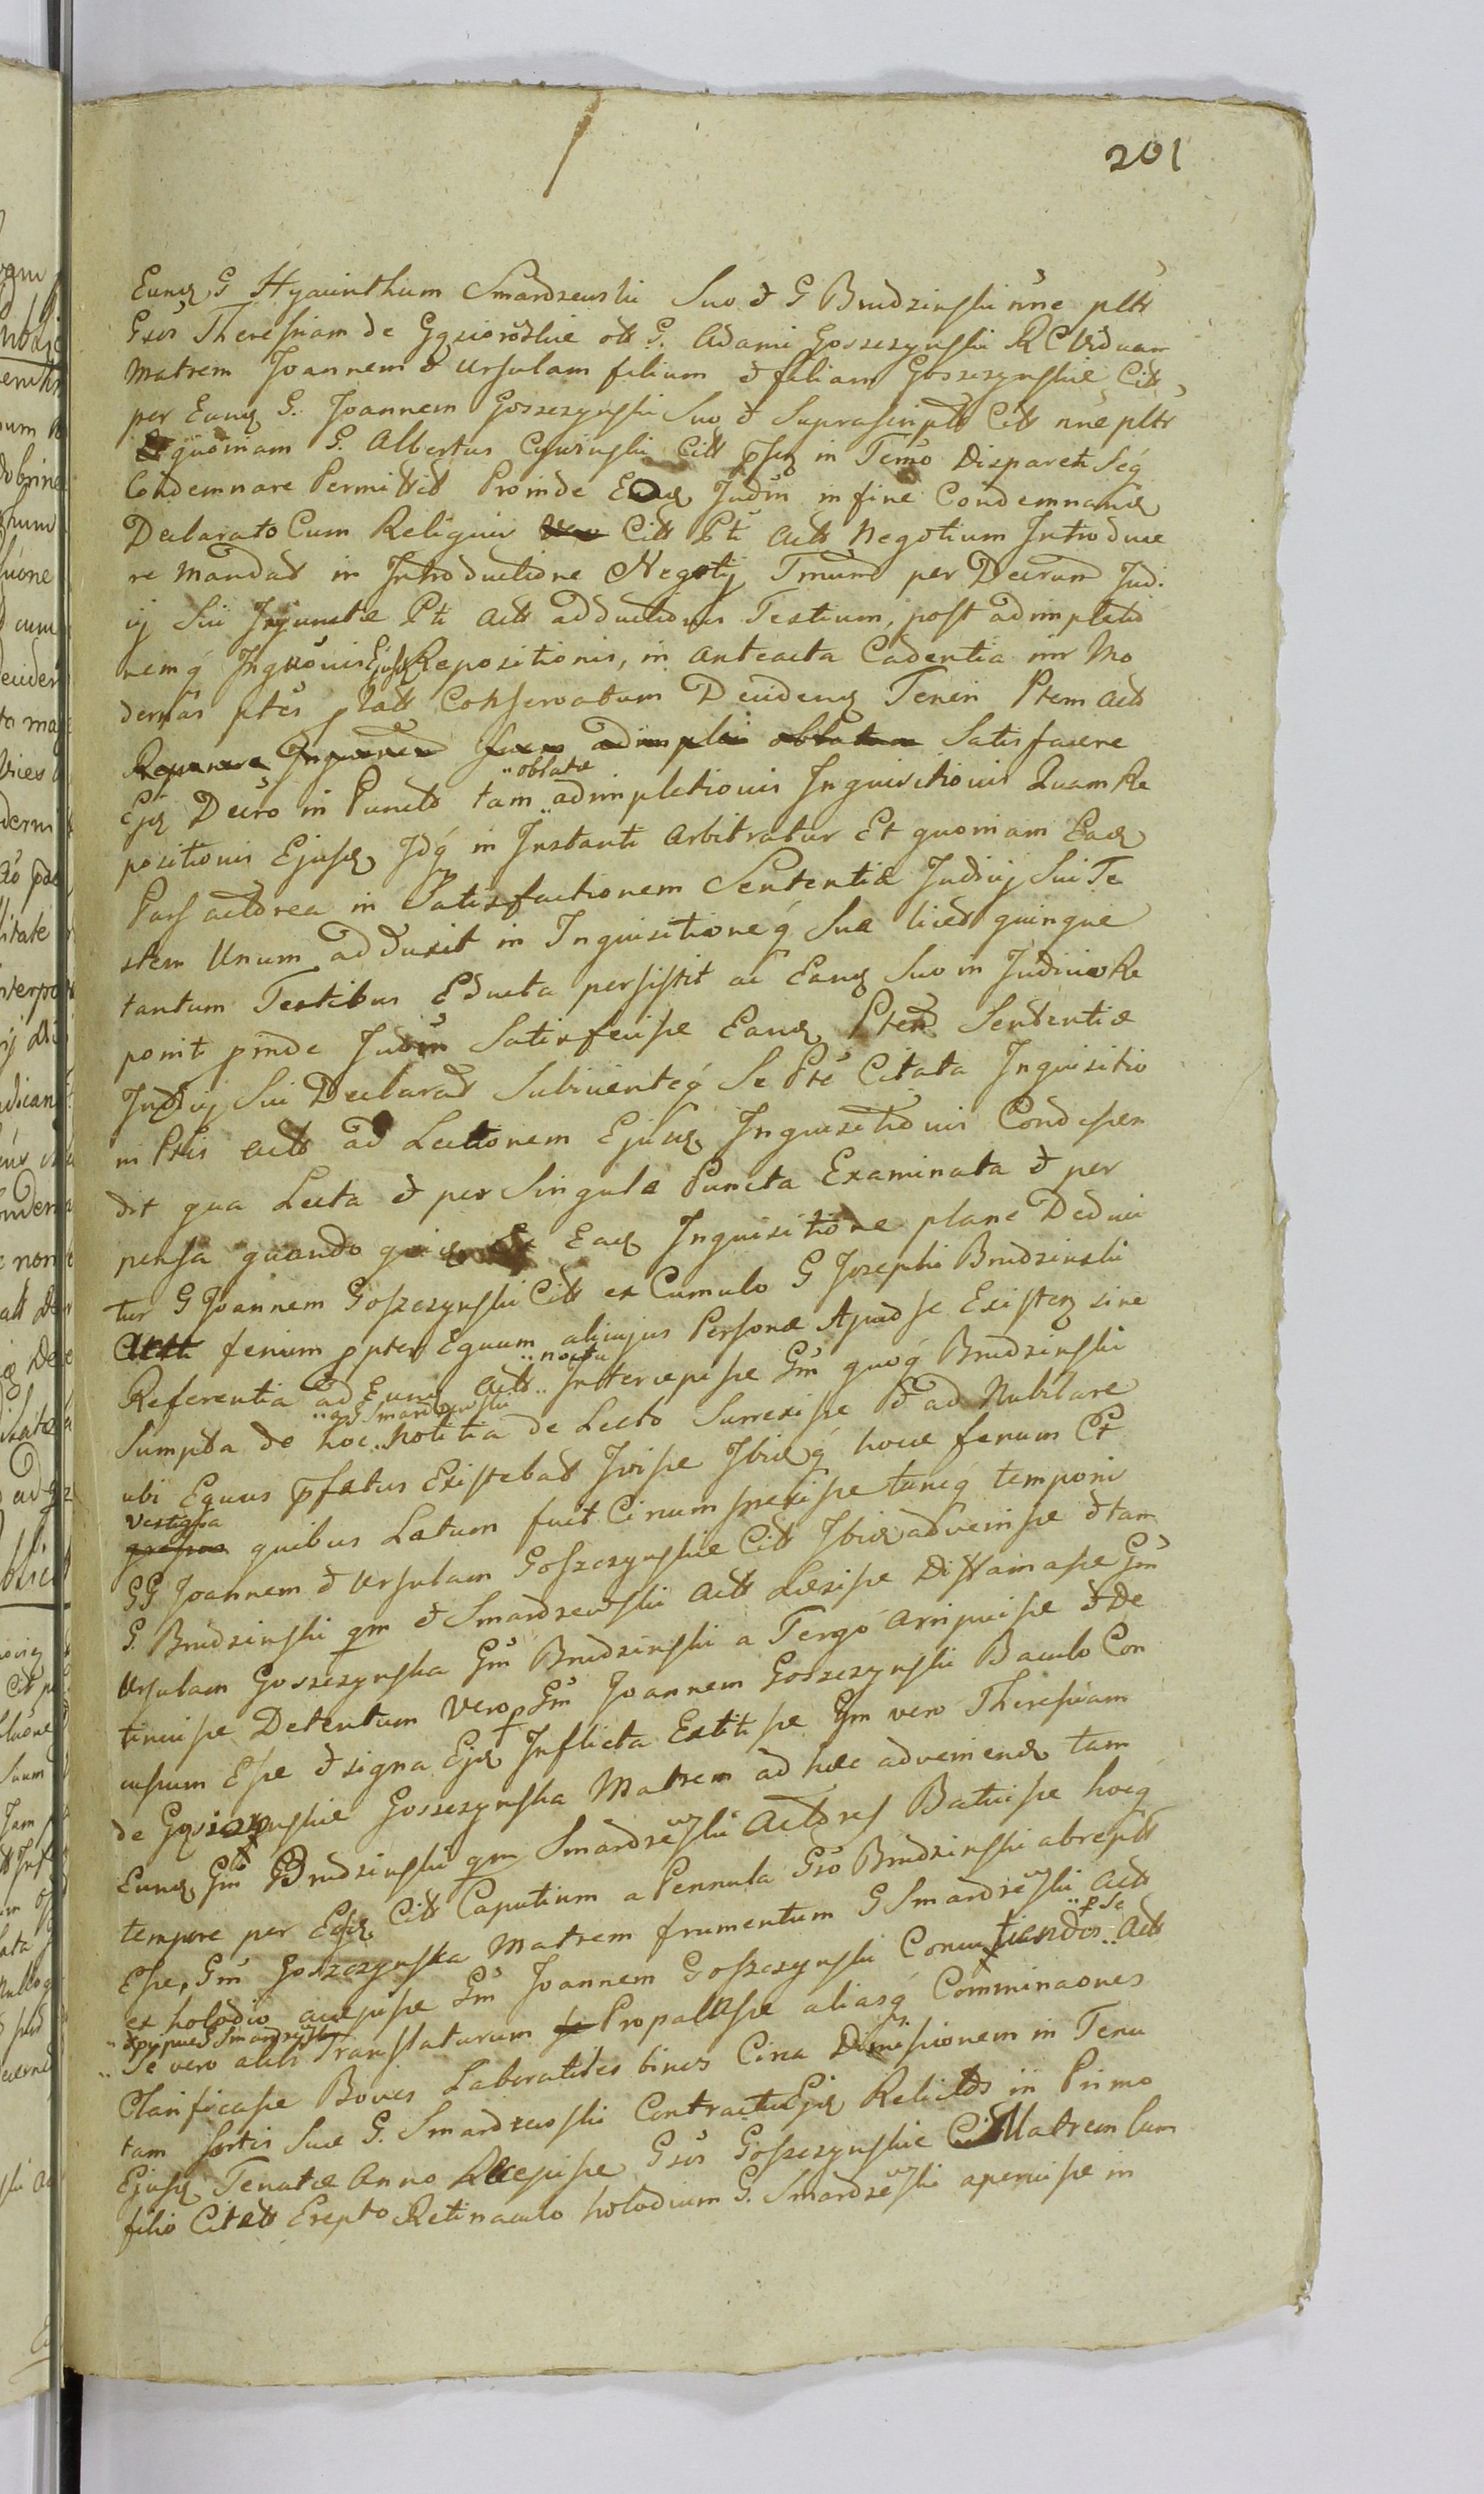 201
Eund G Hyacinthum Smardzewski Suo & G Brudzinski nne pltr
Gsos Theresiam de Gąsiorowskie olt G. Adami Goszczynski RC Viduam
Matrem Joannem & Ursulam filium & filiam Goszczynskie Citt
per Eund G. Joannem Goszczynski Suo & Suprascriptt Citt nne pltr
quoniam G. Albertus Cywinski Citt in Termo Disparet Seq
Condemnare Permittit Proinde Judm in fine Condemnand
Declarato Cum Religuis Citt Pti Actt Negotium Introduce
re Mandat in Introductione Negotij Tmum per Decrum Jud.
ij Sui Injunctæ Pti Actt adductionis Testium, post adimpletio
nemq Inquonis Ejusd Repositionis, in anteacta Cadentia nir Mo
dernas ptes platt Conservatum Decidend Teneri Ptem Actt
Satisfacere
Ejd Decro in Puncto tam oblatæ adimpletionis Inquisitionis Quam Re
positionis Ejusd Idq in Instanti arbitratur Et quoniam Ead
Pars actorea in Satisfactionem Sententiæ Judicij Sui Te
stem Unum adduxit in Inquisitioneq Sua licet quinque
tantum Testibus Educta persistit ac Eand Suo in Judicio Re
ponit pinde Judm Satisfecisse Eand Ptem Sententiæ
Judicij Sui Declarat Subinenteq Se Pte Citata Inquisitio
ni Ptis Actt ad Lectionem Ejusd Inquisitionis Condescen
dit qua Lecta & per Singula Puncta Examinata & per
pensa quando quid Ex Ead Inquisitione plane Deduci
tur G Joannem Goszczynski Citt ex Cumulo G Josephi Brudzinski
Actt fenum ppter Equum alicujus Personæ Apud se Existen sine
Referentia ad Eund Actt noctu Intercepisse Gm quoq Brudzinski
Sumpta de hoc a G Smardzewski Notitia de Lecto Surrexisse & ad Nubilare
ubi Equus pfatus Existebat Ivisse Ibidq hocce fenum Et
vestigia quibus Latum fuit Circumspexisse tuncq temporis
GG Joannem & Ursulam Goszczynskie Citt Ibid advenisse & tam
G. Brudzinski qm & Smardzewski Actt Læsisse Diffamasse Gm
Ursulam Goszczynska Gm Brudzinski a Tergo arripuisse & De
tinuisse Detentum Vero p Gm Joannem Goszczynski Baculo Con
cussum Esse & signa Ejd Inflicta Extitisse Gm vero Theresiam
de Goszczynska Matrem ad hæc adveniend tam
Eund Gm Brudzinski qm Smardzewski Actores Batuisse hocq
tempore per Eosd Citt Caputium a Pennula Gso Brudzinski abreptt
Esse, Gm Goszczynska Matrem frumentum G Smardzewski Actt
ex holodio accepisse Gm Joannem Goszczynski Concutiendos p Se Actt
Se vero alibi Translaturum Propalasse aliasq Comminaones
Clarificasse Boves Laboratiles binos Circa Dimissionem in Tenu
tam Sortis Suæ G. Smardzewski Contractu Ejd Relictos in Primo
Ejusd Tenutæ Anno Recepisse Gsos Goszczynskie Citt Matrem Cum
filio Citatt Erepto Retinaculo holodium G. Smardzewski aperuisse in